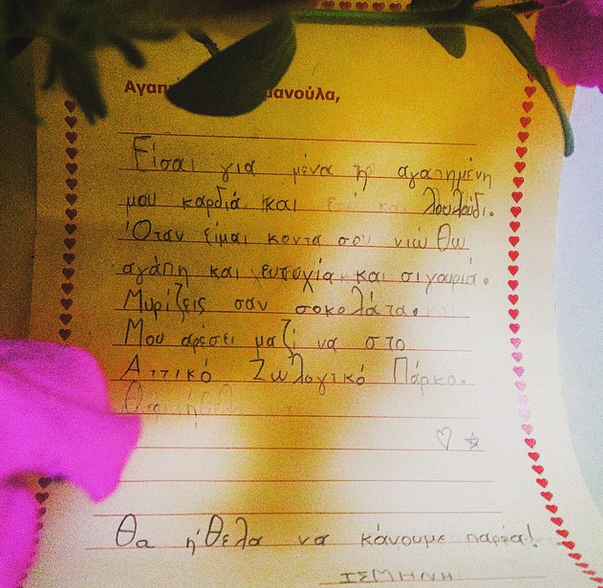 μανούλα,
Είσαι για μένα η αγαπημένη
μου καρδιά και λουλούδι.
Όταν είμαι κοντα σου νιώθω
αγάπη και ευτυχία και σιγουριά.
Μυρίζεις σαν σοκολάτα.
Μου αρέσει μαζί να στο
Αττικό Ζωλογικό Πάρκο.
Θα ήθελα να κάνουμε παρέα!
ΙΣΜΗΝΗ